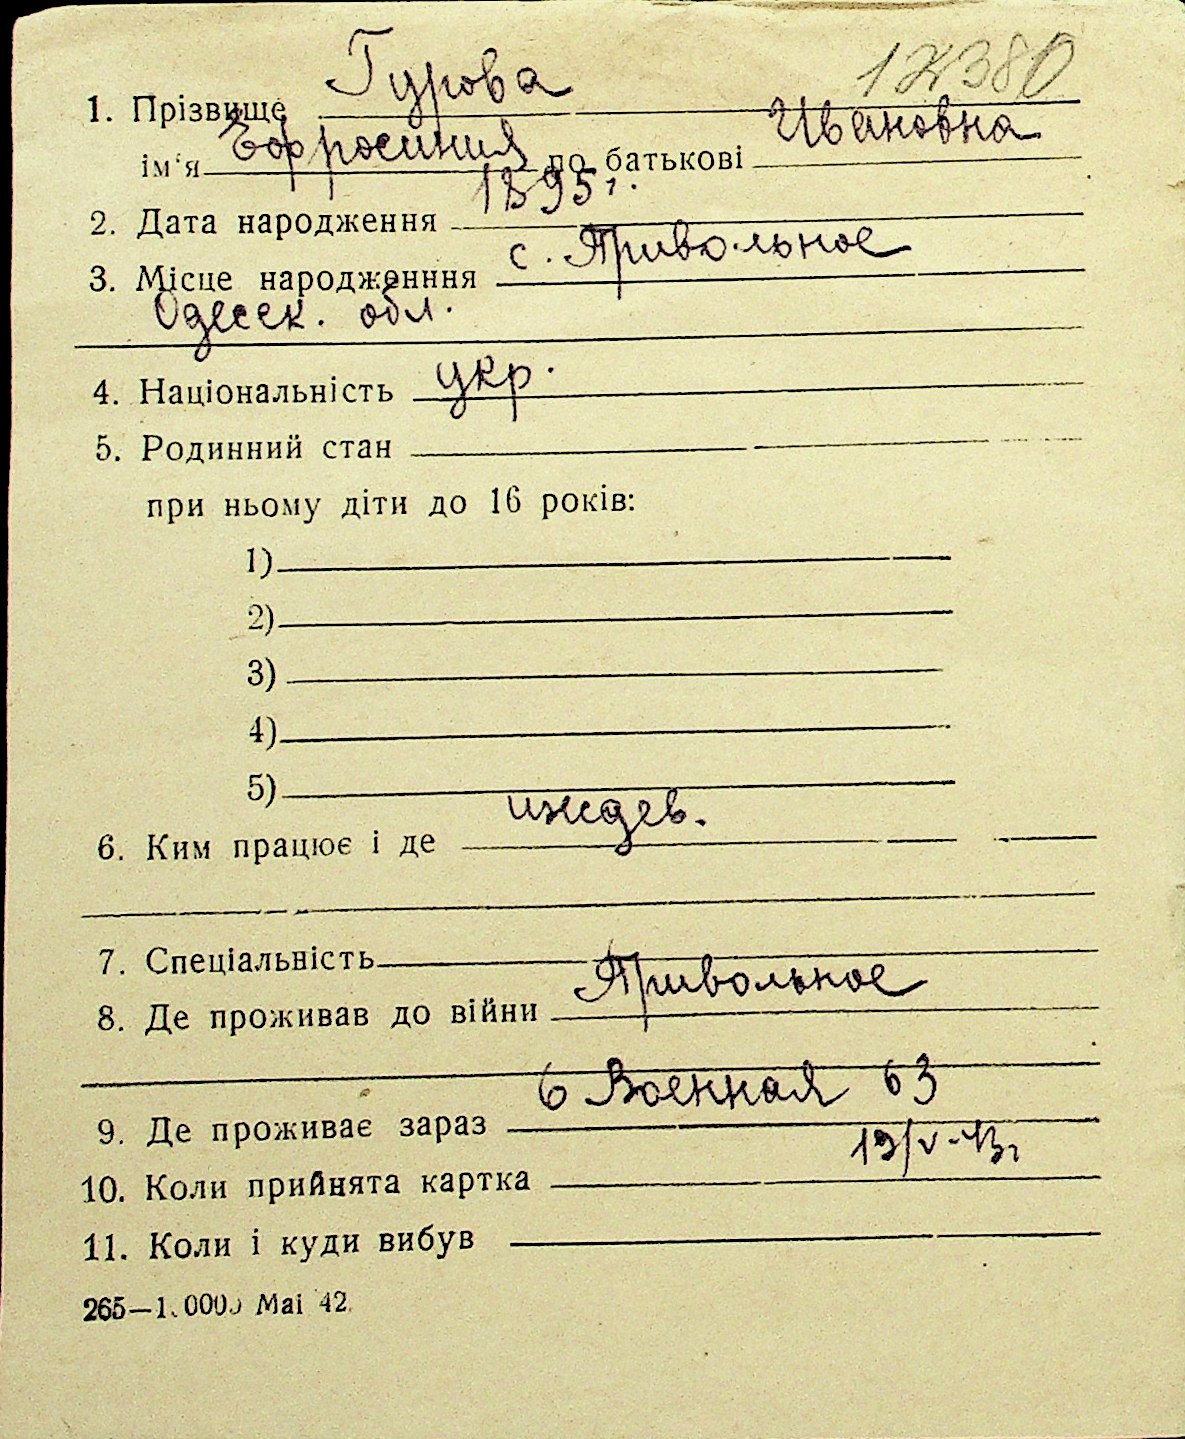 12380
1. Прізвище Гурова
ім‘я Ефросиния по батькові Ивановна
2. Дата народження 1895 г.
3. Місце народженння с. Привольное
Одесск. обл.
4. Національність укр.
5. Родинний стан
при ньому діти до 16 років:
1)
2)
3)
4)
5)
6. Ким працює і де иждев.
7. Спеціальність
8. Де проживав до війни Привольное
9. Де проживає зараз 6 Военная 63
10. Коли прийнята картка 19/V-43г
11. Коли і куди вибув
265—1.000 Mai 42